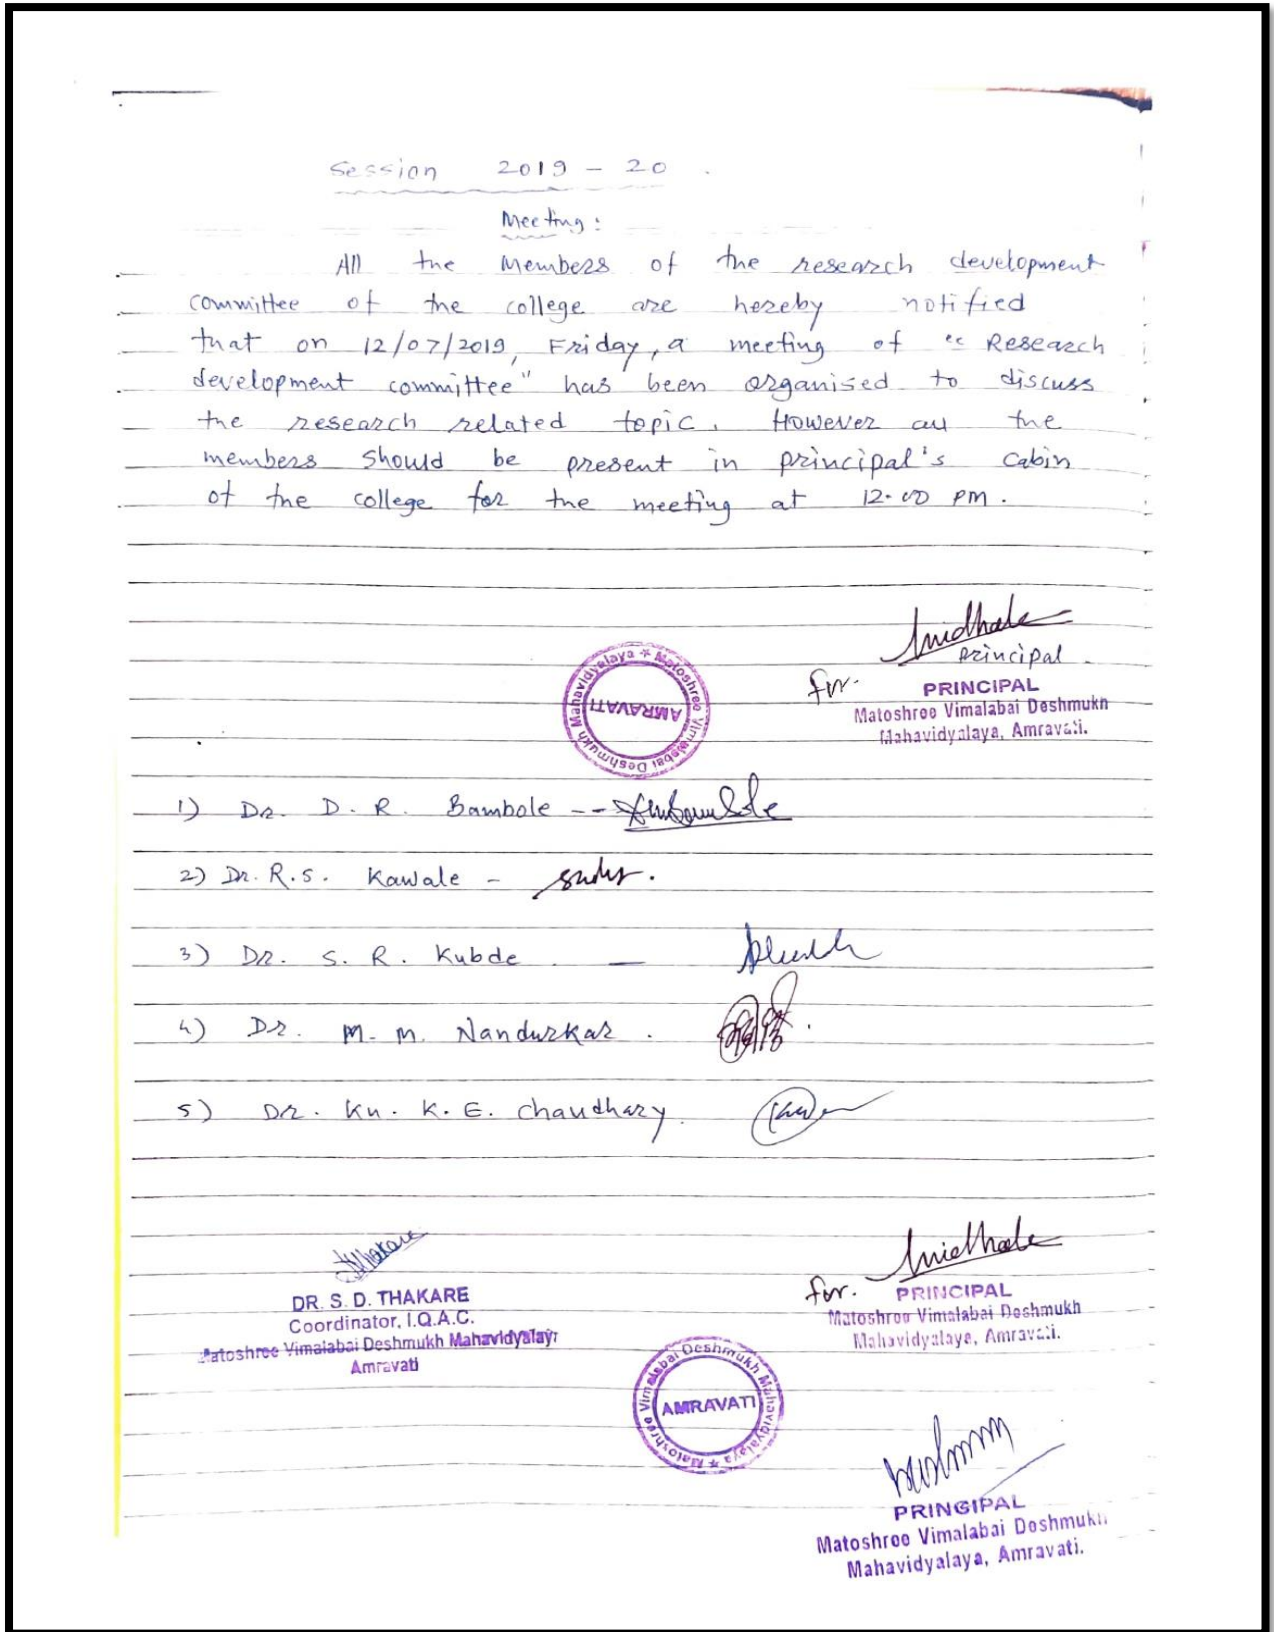 Session 2019 - 20 .
Meeting :
All the Members of the research development
committee of the college are hereby notified
that on 12/07/2019, Friday, a meeting of “ Research
development committee" has been organised to discuss
the research related topic. However all the
members should be present in principal's cabin
of the college for the meeting at 12.00 PM.
principal
for.
PRINCIPAL
Matoshree Vimalabai Deshmukh
Mahavidyalaya, Amravati.
Matoshree Vimalabai Deshmukh Mahavidyalaya *
AMRAVATI
1) Dr. D. R. Bambole --
2) Dr. R.S. Kawale -
3) Dr. S. R. Kubde . —
4) Dr. M. M. Nandurkar .
5) Dr. Ku. K. E. Chaudhary.
DR. S. D. THAKARE
Coordinator, I.Q.A.C.
Matoshree Vimalabai Deshmukh Mahavidyalay
Amravati
for.
PRINCIPAL
Matoshree Vimalabai Deshmukh
Mahavidyalaya, Amravati.
Matoshree Vimalabai Deshmukh Mahavidyalaya *
AMRAVATI
PRINCIPAL
Matoshree Vimalabai Deshmukh
Mahavidyalaya, Amravati.